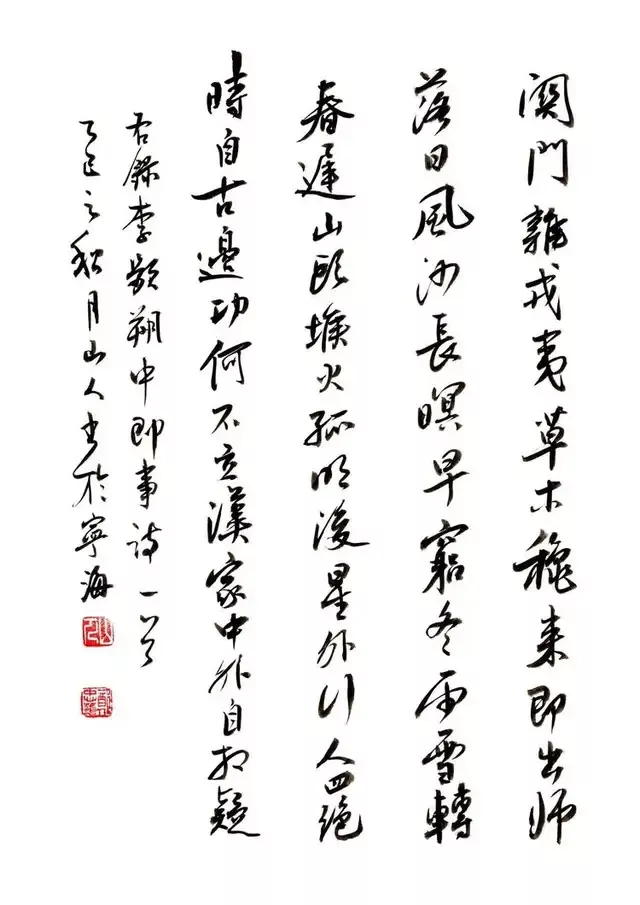 關門雜戎夷草木穐來即出師
落日風沙長暝早窮冬雨雪轉
春遲山頭堠火孤明後星外行人四絕
時自古邊功何不立漢家中外自相疑
右錄李頻朔中即事詩一首
乙巳之秋月山人書於寧海